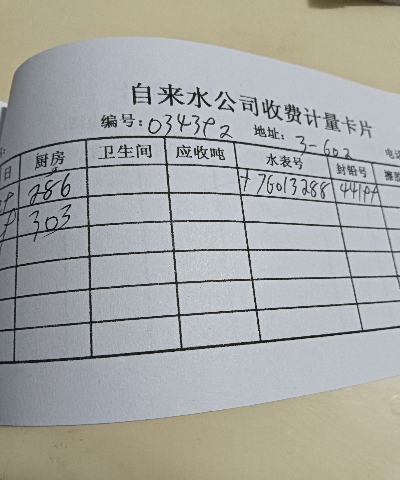 自来水公司收费计量卡片
编号:034392 地址:3-602 电话
日 厨房 卫生间 应收吨 水表号 封铅号
286 +76013288
303